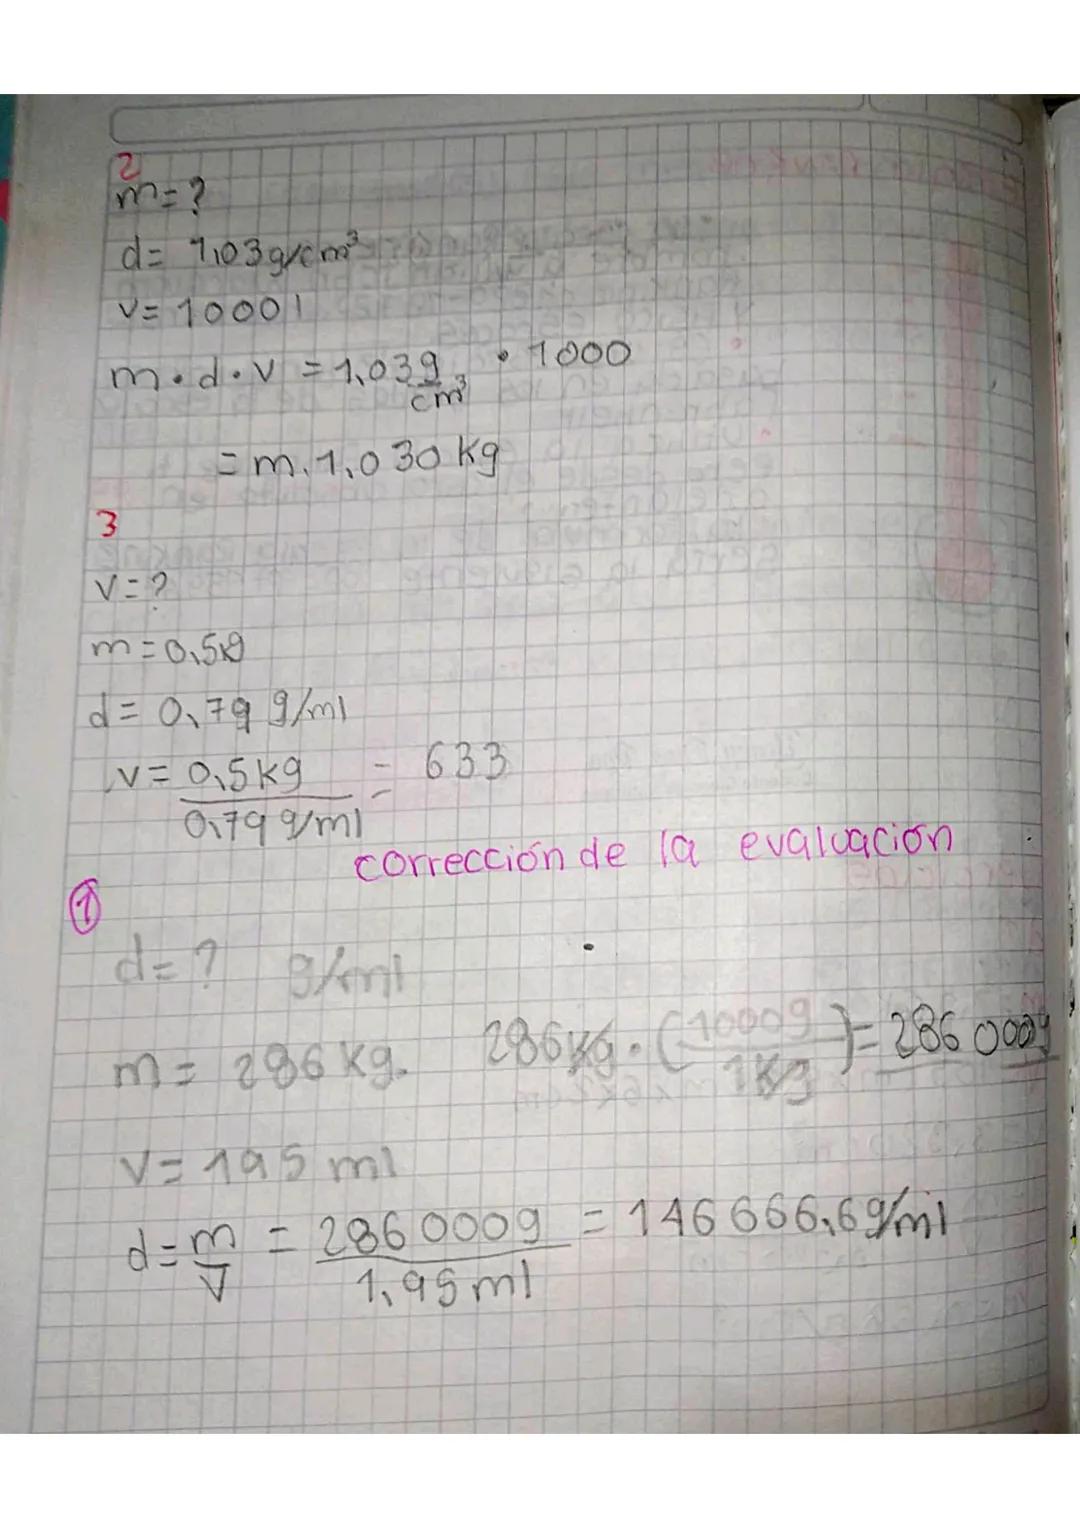 2
m=?
d= 1,03 g/cm³
v= 1000 l
m·d·v = 1,03 g/cm³ · 1000
= m.1,030 kg
3
v=?
m=0,5kg
d= 0,79 g/ml
v= 0,5kg / 0,79 g/ml = 633
corrección de la evaluación
1
d=? g/ml
m= 286 kg. 286kg·(1000g/1Kg)= 286 000g
v= 195 ml
d= m/v = 286 000g / 1,95 ml = 146 666,6 g/ml